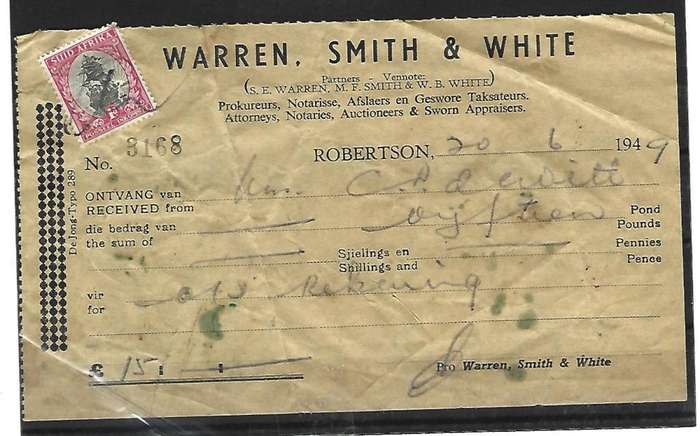 SUID-AFRIKA
WARREN, SMITH & WHITE
Partners - Vennote:
(S. E. WARREN, M. F. SMITH & W. B. WHITE)
Prokureurs, Notarisse, Afslaers en Geswore Taksateurs.
Attorneys, Notaries, Auctioneers & Sworn Appraisers.
No. 3168
ROBERTSON, 20 6 1949
De Jong-Typo 289
ONTVANG van
RECEIVED from C. P. de Witt
die bedrag van Vyftien Pond
the sum of Pounds
Sjielings en Pennies
Shillings and Pence
vir
for Rekening
£ 15
Pro Warren, Smith & White